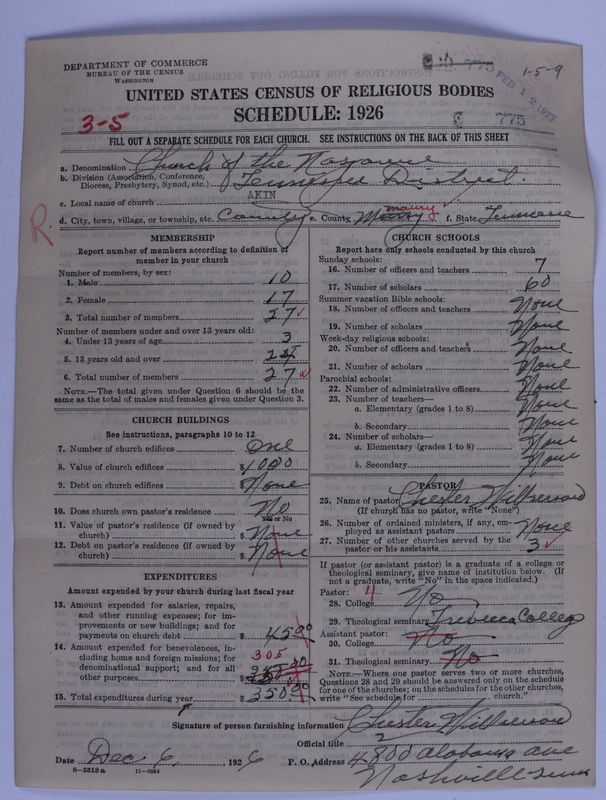 DEPARTMENT OF COMMERCE
BUREAU OF THE CENSUS
WASHINGTON
775
FEB 12 1927
1-5-9
UNITED STATES CENSUS OF RELIGIOUS BODIES
SCHEDULE: 1926
3-5
775
FILL OUT A SEPARATE SCHEDULE FOR EACH CHURCH. SEE INSTRUCTIONS ON THE BACK OF THIS SHEET
a. Denomination Church of the Nazarene
b. Division (Association, Conference, Diocese, Presbytery, Synod, etc.) Tennessee District.
c. Local name of church AKIN
d. City, town, village, or township, etc. County e. County Maury f. State Tennessee
R.
MEMBERSHIP
Report number of members according to definition of
member in your church
Number of members, by sex:
1. Male 10
2. Female 17
3. Total number of members 27
Number of members under and over 13 years old:
4. Under 13 years of age 3
5. 13 years old and over 24
6. Total number of members 27
NOTE.—The total given under Question 6 should be the
same as the total of males and females given under Question 3.
CHURCH BUILDINGS
See instructions, paragraphs 10 to 12
7. Number of church edifices One
8. Value of church edifices $1000
9. Debt on church edifices $None
10. Does church own pastor's residence No
Yes or No
11. Value of pastor's residence (if owned by
church) $None
12. Debt on pastor's residence (if owned by
church) $None
EXPENDITURES
Amount expended by your church during last fiscal year
13. Amount expended for salaries, repairs,
and other running expenses; for im-
provements or new buildings; and for
payments on church debt $45.00
14. Amount expended for benevolences, in-
cluding home and foreign missions; for
denominational support; and for all
other purposes $ 305
15. Total expenditures during year $350.00
CHURCH SCHOOLS
Report here only schools conducted by this church
Sunday schools:
16. Number of officers and teachers 7
17. Number of scholars 60
Summer vacation Bible schools:
18. Number of officers and teachers None
19. Number of scholars None
Week-day religious schools:
20. Number of officers and teachers None
21. Number of scholars None
Parochial schools:
22. Number of administrative officers None
23. Number of teachers—
a. Elementary (grades 1 to 8) None
b. Secondary None
24. Number of scholars—
a. Elementary (grades 1 to 8) None
b. Secondary None
PASTOR
25. Name of pastor Chester Wilkerson
(If church has no pastor, write "None")
26. Number of ordained ministers, if any, em-
ployed as assistant pastors None
27. Number of other churches served by the
pastor or his assistants 3
If pastor (or assistant pastor) is a graduate of a college or
theological seminary, give name of institution below. (If
not a graduate, write "No" in the space indicated.)
Pastor: 4
28. College No
29. Theological seminary Trevecca College
Assistant pastor:
30. College No
31. Theological seminary No
NOTE.—Where one pastor serves two or more churches,
Questions 28 and 29 should be answered only on the schedule
for one of the churches; on the schedules for the other churches,
write "See schedule for church."
Signature of person furnishing information Chester Wilkerson
Official title
Date Dec 6, 1926 P. O. Address 4300 Alabama Ave
Nashville Tenn
8—5518 a 11—9064